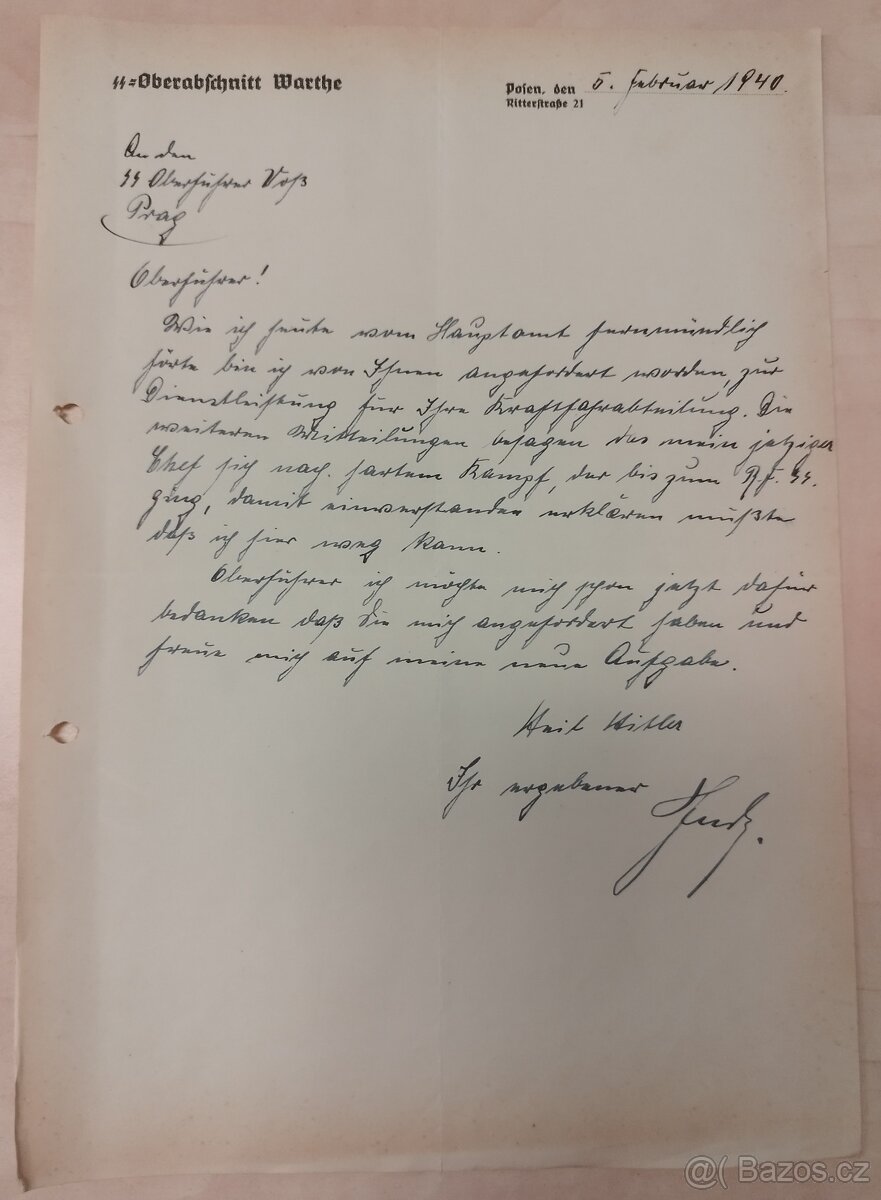 SS-Oberabschnitt Warthe
Posen, den 5. Februar 1940.
Ritterstraße 21
An den
SS Oberführer Voß
Prag
Oberführer!
Wie ich heute vom Hauptamt fernmündlich
hörte bin ich von Ihnen angefordert worden, zur
Dienstleistung für Ihre Kraftfahrabteilung. Die
weiteren Mitteilungen besagen das mein jetziger
Chef sich nach hartem Kampf, der bis zum RF. SS.
ging, damit einverstanden erklären mußte
daß ich hier weg kann.
Oberführer ich möchte mich schon jetzt dafür
bedanken daß Sie mich angefordert haben und
freue mich auf meine neue Aufgabe.
Heil Hitler
Ihr ergebener
@( Bazos.cz